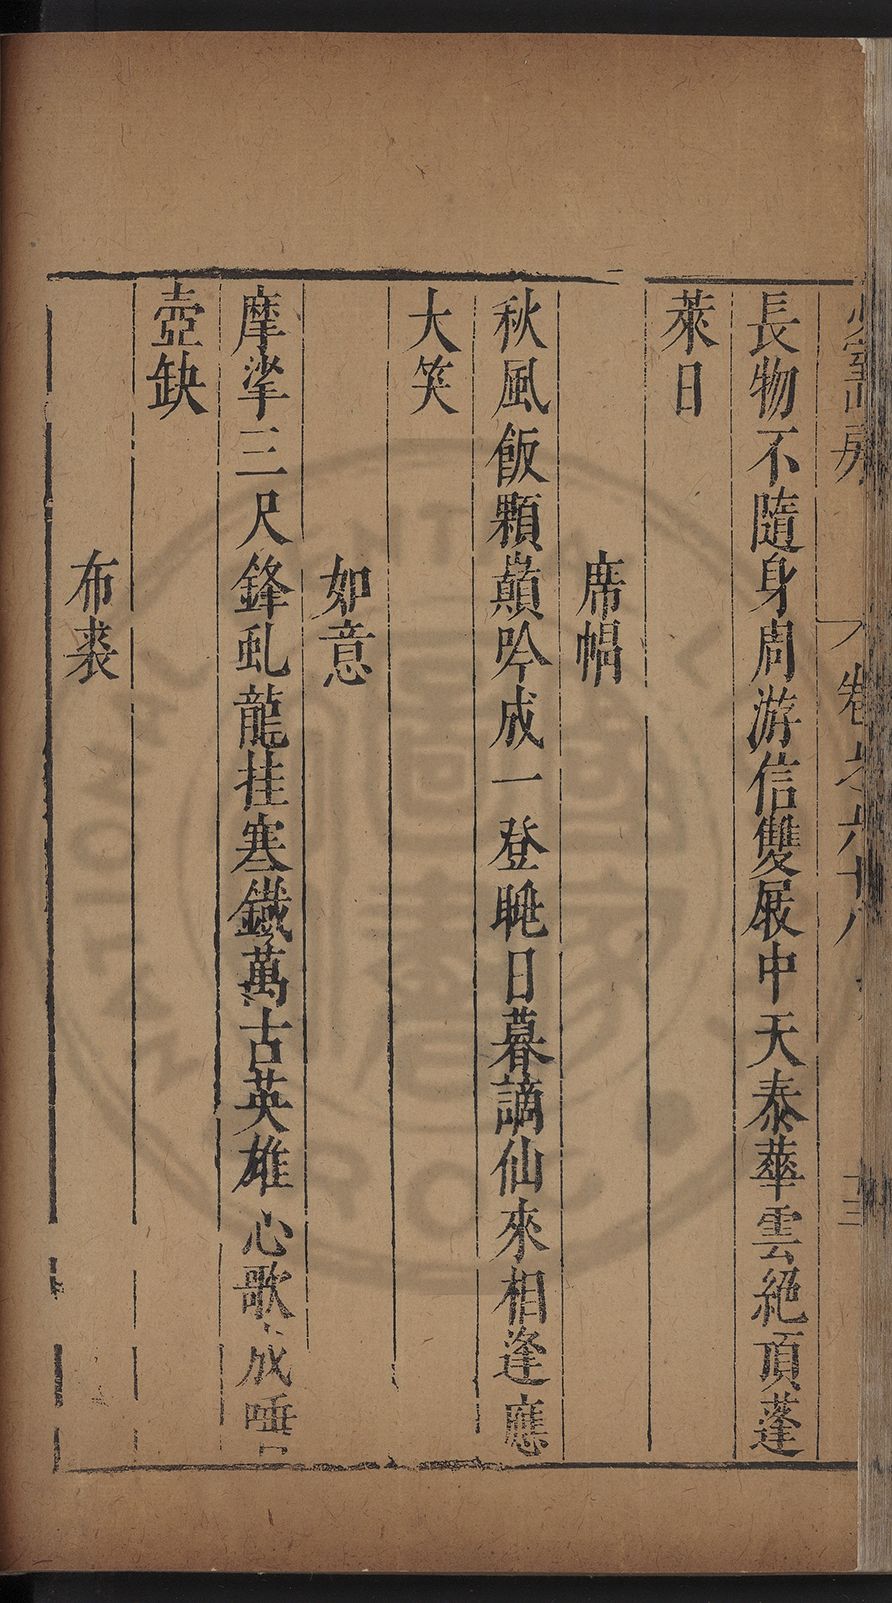 卷之六十八
長物不隨身周游信雙屐中天泰華雲絕頂蓬
萊日
席帽
秋風飯顆巔吟成一登眺日暮謫仙來相逢應
大笑
如意
摩挲三尺鋒虬龍挂寒鐵萬古英雄心歌成唾
壺缺
布裘